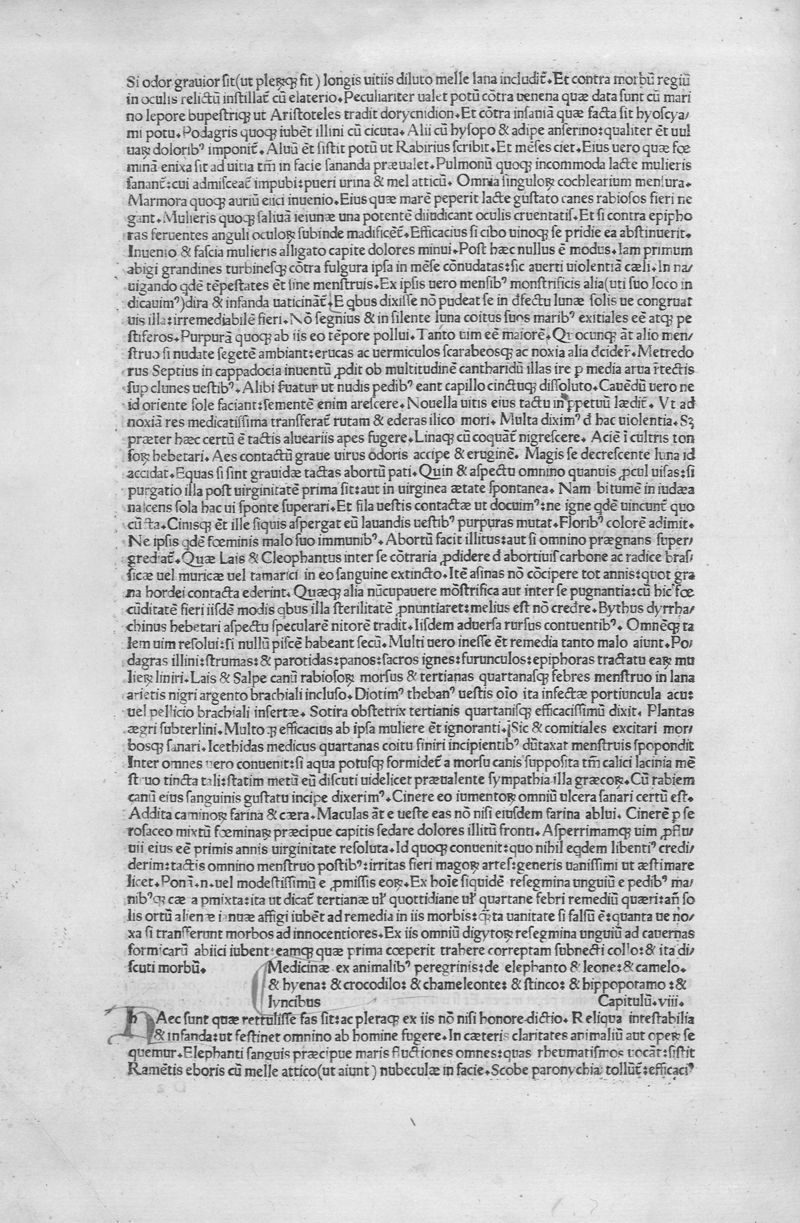 Si odor grauior ſit(ut pleꝝqꝫ fit) longis uitiis diluto melle lana includit̃. Et contra morbũ regiũ
in oculis relictũ inſtillat̃ cũ elaterio. Peculiariter ualet potũ cõtra uenena quæ data ſunt cũ mari
no lepore bupeſtriqꝫ ut Ariſtoteles tradit dorycnidion. Et cõtra inſaniã quæ facta ſit hyoſcya/
mi potu. Podagris quoqꝫ iubẽt illini cũ cicuta. Alii cũ hyſopo & adipe anſerino: qualiter ẽt uul
uaꝝ doloribꝰ imponit̃. Aluũ ẽt ſiſtit potũ ut Rabirius ſcribit. Et mẽſes ciet. Eius uero quæ fœ
minã enixa ſit ad uitia tm̃ in facie ſananda præualet. Pulmonũ quoqꝫ incommoda lacte mulieris
ſanant̃: cui admiſceat̃ impubi: pueri urina & mel atticũ. Omnia ſinguloꝝ cochlearium menſura.
Marmora quoqꝫ auriũ eiici inuenio. Eius quæ marẽ peperit lacte guſtato canes rabioſos fieri ne
gant. Mulieris quoqꝫ ſaliuã ieiunæ una potentẽ diiudicant oculis cruentatiſ. Et ſi contra epipho
ras feruentes anguli oculoꝝ ſubinde madificẽt̃. Efficacius ſi cibo uinoqꝫ ſe pridie ea abſtinuerit.
Inuenio & faſcia mulieris alligato capite dolores minui. Poſt hæc nullus ẽ modus. Iam primum
abigi grandines turbineſqꝫ cõtra fulgura ipſa in mẽſe cõnudatas: ſic auerti uiolentiã cæli. In na/
uigando qdẽ tẽpeſtates ẽt ſine menſtruis. Ex ipſis uero menſibꝰ monſtrificis alia(uti ſuo loco in
dicauimꝰ)dira & infanda uaticinãt̃. E qbus dixiſſe nõ pudeat ſe in dfectu lunæ ſolis ue congruat
uis illa: irremediabilẽ fieri. Nõ ſegnius & in ſilente luna coitus ſuos maribꝰ exitiales eẽ atqꝫ pe
ſtiferos. Purpurã quoqꝫ ab iis eo tẽpore pollui. Tanto uim eẽ maiorẽ. Qͥocunqꝫ ãt alio men/
ſtruo ſi nudate ſegetẽ ambiant: erucas ac uermiculos ſcarabeoſqꝫ ac noxia alia dcider̃. Metredo
rus Septius in cappadocia inuentũ ꝓdit ob multitudinẽ cantharidũ illas ire p media arua r̃tectis
ſup clunes ueſtibꝰ. Alibi ẜuatur ut nudis pedibꝰ eant capillo cinctuqꝫ diſſoluto. Cauẽdũ uero ne
id oriente ſole faciant: ſementẽ enim areſcere. Nouella uitis eius tactu in ꝑpetuũ lædit̃. Vt ad
noxiã res medicatiſſima tranſferat̃ rutam & ederas ilico mori. Multa diximꝰ d hac uiolentia. Sꝫ
præter hæc certũ ẽ tactis alueariis apes fugere. Linaqꝫ cũ coquãt̃ nigreſcere. Aciẽ ĩ cultris ton
ſoꝝ hebetari. Aes contactũ graue uirus odoris accipe & eruginẽ. Magis ſe decreſcente luna id
accidat. Equas ſi ſint grauidæ tactas abortũ pati. Quin & aſpectu omnino quanuis ꝓcul uiſas: ſi
purgatio illa poſt uirginitatẽ prima ſit: aut in uirginea ætate ſpontanea. Nam bitumẽ in iudæa
naſcens ſola hac ui ſponte ſuperari. Et fila ueſtis contactæ ut docuimꝰ: ne igne qdẽ uincunt̃ quo
cũcta. Cinisqꝫ ẽt ille ſiquis aſpergat eũ lauandis ueſtibꝰ purpuras mutat. Floribꝰ colorẽ adimit.
Ne ipſis qdẽ fœminis malo ſuo immunibꝰ. Abortũ facit illitus: aut ſi omnino prægnans ſuper/
grediat̃. Quæ Lais & Cleophantus inter ſe cõtraria ꝓdidere d abortiuiſ carbone ac radice braſ/
ſicæ uel muricæ uel tamarici in eo ſanguine extincto. Itẽ aſinas nõ cõcipere tot annis: quot gra
na hordei contacta ederint. Quæqꝫ alia nũcupauere mõſtrifica aut inter ſe pugnantia: cũ hicꝰ fœ
cũditatẽ fieri iiſdẽ modis qbus illa ſterilitatẽ ꝓnuntiaret: melius eſt nõ credre. Bythus dyrrha/
chinus hebetari aſpectu ſpecularẽ nitorẽ tradit. Iiſdem aduerſa rurſus contuentibꝰ. Omnẽqꝫ ta
lem uim reſolui: ſi nullũ piſcẽ habeant ſecũ. Multi uero ineſſe ẽt remedia tanto malo aiunt. Po/
dagras illini: ſtrumas: & parotidas: panos: ſacros ignes: furunculos: epiphoras tractatu eaꝝ mu
lieꝝ liniri. Lais & Salpe canũ rabioſoꝝ morſus & tertianas quartanaſqꝫ febres menſtruo in lana
arietis nigri argento brachiali incluſo. Diotimꝰ thebanꝰ ueſtis oĩo ita infectæ portiuncula acu:
uel pellicio brachiali inſertæ. Sotira obſtetrix tertianis quartaniſqꝫ efficaciſſimũ dixit. Plantas
ægri ſubterlini. Multoqꝫ efficacius ab ipſa muliere ẽt ignoranti. Sic & comitiales excitari mor/
boſqꝫ ſanari. Icethidas medicus quartanas coitu finiri incipientibꝰ dũtaxat menſtruis ſpopondit
Inter omnes uero conuenit: ſi aqua potuſqꝫ formidet̃ a morſu canis ſuppoſita tm̃ calici lacinia mẽ
ſtruo tincta tali: ſtatim metũ eũ diſcuti uidelicet præualente ſympathia illa græcoꝝ. Cũ rabiem
canũ eius ſanguinis guſtatu incipe dixerimꝰ. Cinere eo iumentoꝝ omniũ ulcera ſanari certũ eſt.
Addita caminoꝝ farina & cæra. Maculas ãt e ueſte eas nõ niſi eiuſdem farina ablui. Cinerẽ p ſe
roſaceo mixtũ fœminaꝝ præcipue capitis ſedare dolores illitũ fronti. Aſperrimamqꝫ uim ꝓflu/
uii eius eẽ primis annis uirginitate reſoluta. Id quoqꝫ conuenit: quo nihil eqdem libentiꝰ credi/
derim: tactis omnino menſtruo poſtibꝰ: irritas fieri magoꝝ arteſ: generis uaniſſimi ut æſtimare
licet. Ponã. n. uel modeſtiſſimũ e ꝓmiſſis eoꝝ. Ex hoĩe ſiquidẽ reſegmina unguiũ e pedibꝰ ma/
nibꝰqꝫ cæra pmixta: ita ut dicat̃ tertianæ ul̃ quottidiane ul̃ quartane febri remediũ quæri: ãñ ſo
lis ortũ alienæ ianuæ affigi iubẽt ad remedia in iis morbis: qͣta uanitate ſi falſũ ẽ: quanta ue no/
xa ſi tranſferunt morbos ad innocentiores. Ex iis omniũ digytoꝝ reſegmina unguiũ ad cauernas
formicarũ abiici iubent eamqꝫ quæ prima cœperit trahere correptam ſubnecti collo: & ita di/
ſcuti morbũ.
Medicinæ ex animalibꝰ peregrinis: de elephanto & leone: & camelo.
& hyena: & crocodilo: & chameleonte: & ſtinco: & hippoporamo : &
lyncibus Capitulũ. viii.
HAec ſunt quæ retruliſſe fas ſit: ac pleraqꝫ ex iis nõ niſi honore dicto. Reliqua inteſtabilia
& infanda: ut feſtinet omnino ab homine fugere. In cæteris claritates animaliũ aut operꝝ ſe
quemur. Elephanti ſanguis præcipue maris fluctiones omnes: quas rheumatiſmos uocãt: ſiſtit
Ramẽtis eboris cũ melle attico(ut aiunt) nubeculæ in facie. Scobe paronychia tollũt̃: efficaciꝰ